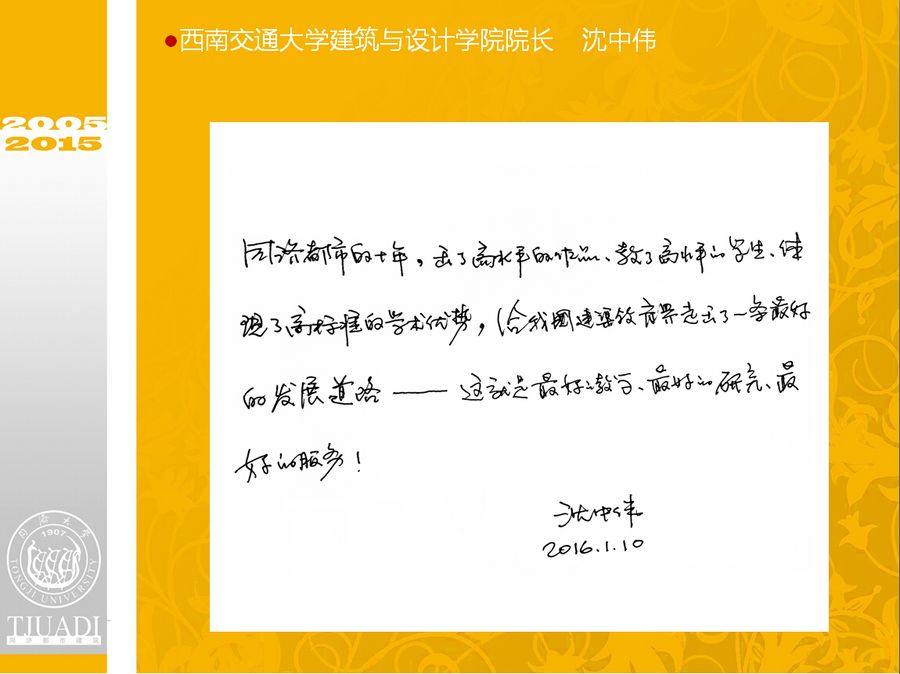 西南交通大学建筑与设计学院院长 沈中伟
2005
2015
同济都市的十年，出了高水平的作品、教了高水平的学生、体
现了高标准的学术优势，给我国建筑教育界走出了一条最好
的发展道路——这就是最好的教学、最好的研究、最
好的服务！
沈中伟
2016.1.10
同济大学
1907
TONGJI UNIVERSITY
TJUADI
同济都市建筑